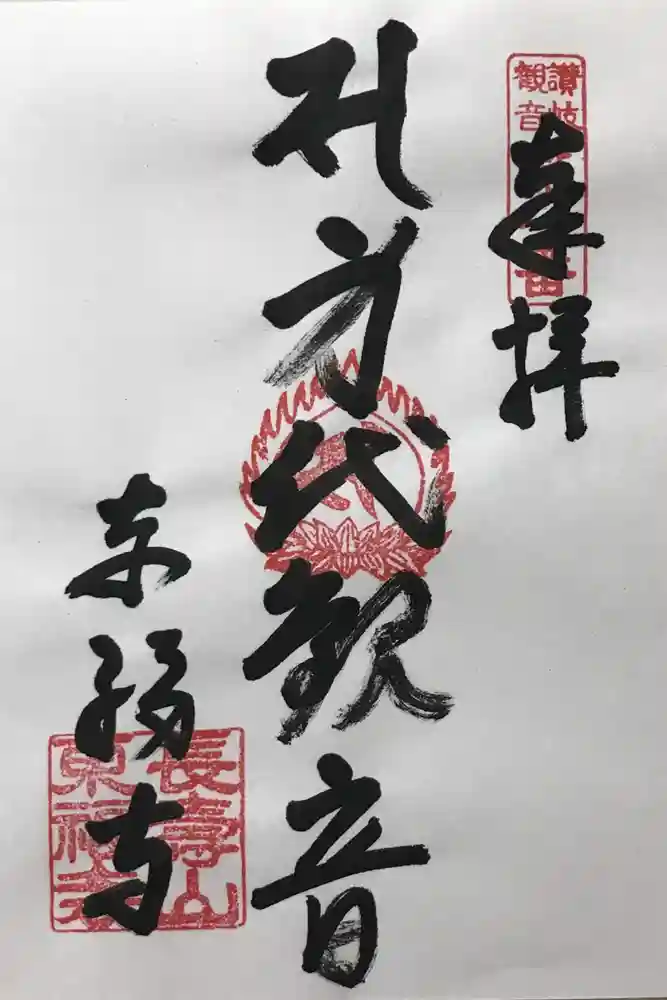 讃岐
観音
番
奉拝
御身代観音
東福寺
長壽山
東福寺